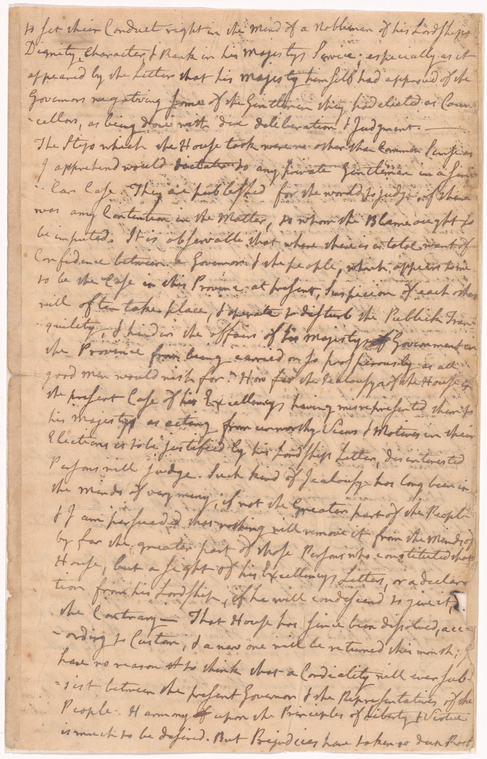 to set their Conduct right in the Mind of a Nobleman of his Lordships
Dignity, Character & Rank in his Majestys Service; especially as it
appeared by the Letter that his Majesty himself had approved of the
Governors negativing some of the Gentlemen they had elected as Coun
-cellors, as being done with due deliberation & Judgment.
The Steps which the House took were no other than Common Sense as
I apprehend would dictate to any private Gentleman in a Simi
lar Case. They are published for the world to judge, if there
was any Contention in the Matter, to whom the Blame ought to
be imputed. It is observable that where there is a total want of
Confidence between a Governor & the people, which appears to me
to be the Case in this Province at present, Suspicion of each other
will often take place, & operate to disturb the Publick Tran
quility, & hinder the affairs of his Majestys Government in
the Province from being carried on so prosperously as all
good men would wish for. How far the Jealousy of the House in
the present Case of his Excellencys having misrepresented them to
his Majesty as acting from unworthy Views & Motives in their
Elections is to be justified by his Lordships Letter, disinterested
Persons will judge. Such kind of Jealousy has long been in
the Minds of very many, if not the Greater part of the People
& I am perswaded that nothing will remove it from the Minds of
by far the greater part of those Persons who constituted that
House, but a Sight of his Excellencys Letters, or a declara
tion from his Lordship, if he will condescend to give it,
the Contrary— That House has since been dissolved, acc
-ording to Custom, & a new one will be returned this month; I
have no reason to think that a Cordiality will ever sub
sist between the present Governor & the Representatives of the
People. Harmony upon the Principles of Liberty & Virtue
is much to be desired. But Prejudices have taken so deep Root